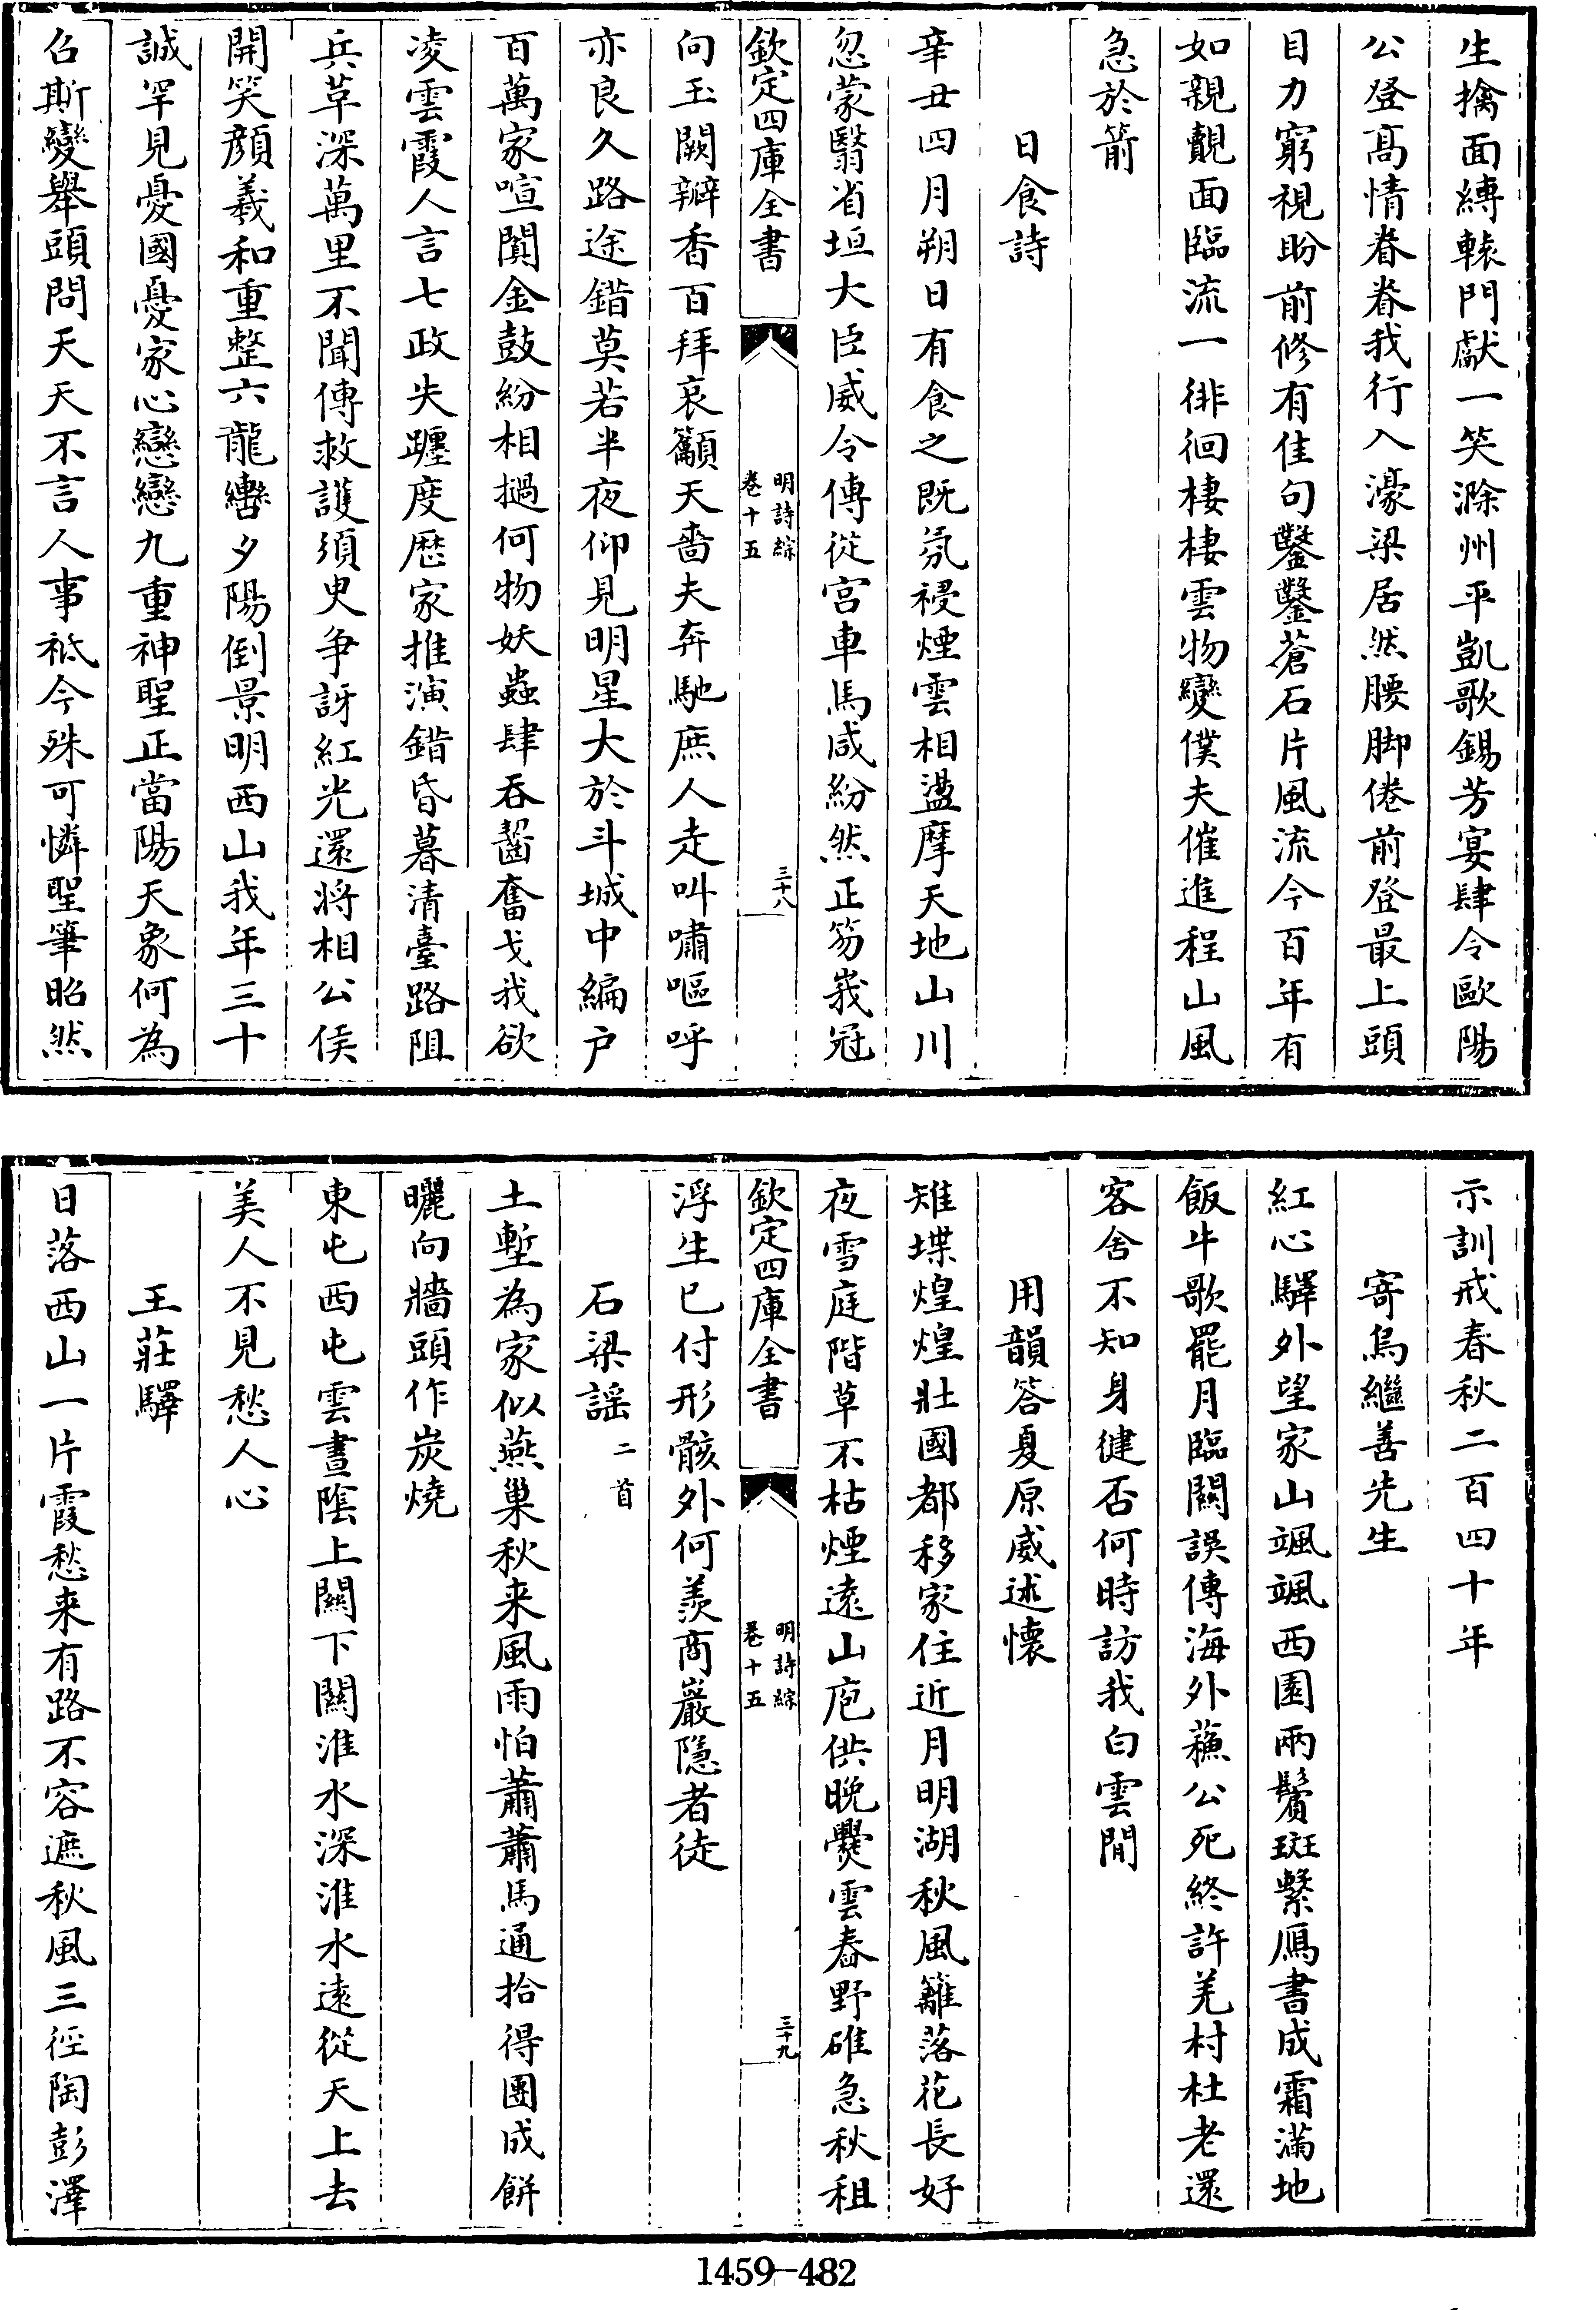 生擒面縛轅門獻一笑滁州平凱歌錫芳宴肆令歐陽
公登高情眷眷我行入濠梁居然腰脚倦前登最上頭
目力窮視盼前修有佳句鑿鑿蒼石片風流今百年有
如親覿面臨流一徘徊棲棲雲物變僕夫催進程山風
急於箭
日食詩
辛丑四月朔日有食之既氛祲煙雲相盪摩天地山川
忽蒙翳省垣大臣威令傳從宫車馬咸紛然正笏峩冠
欽定四庫全書
明詩綜
卷十五
三十八
向玉闕瓣香百拜哀籲天嗇夫奔馳庶人走叫嘯嘔呼
亦良久路途錯莫若半夜仰見明星大於斗城中編户
百萬家喧闐金鼓紛相撾何物妖蟲肆吞齧奮戈我欲
凌雲霞人言七政失躔度厯家推演錯昏暮清臺路阻
兵草深萬里不聞傳救護須臾爭訝紅光還將相公侯
開笑顔羲和重整六龍轡夕陽倒景明西山我年三十
誠罕見憂國憂家心戀戀九重神聖正當陽天象何為
召斯變舉頭問天天不言人事祗今殊可憐聖筆昭然
示訓戒春秋二百四十年
寄烏繼善先生
紅心驛外望家山颯颯西園兩鬢斑繫鴈書成霜滿地
飯牛歌罷月臨關誤傳海外蘓公死終許羌村杜老還
客舍不知身健否何時訪我白雲間
用韻答夏原威述懷
雉堞煌煌壯國都移家住近月明湖秋風籬落花長好
夜雪庭階草不枯煙遠山庖供晩爨雲舂野碓急秋租
欽定四庫全書
明詩綜
卷十五
三十九
浮生已付形骸外何羡商巖隱者徒
石梁謡二首
土塹為家似燕巢秋来風雨怕蕭蕭馬通拾得團成餅
曬向牆頭作炭燒
東屯西屯雲晝陰上關下關淮水深淮水遠從天上去
美人不見愁人心
王莊驛
日落西山一片霞愁来有路不容遮秋風三徑陶彭澤
1459—482